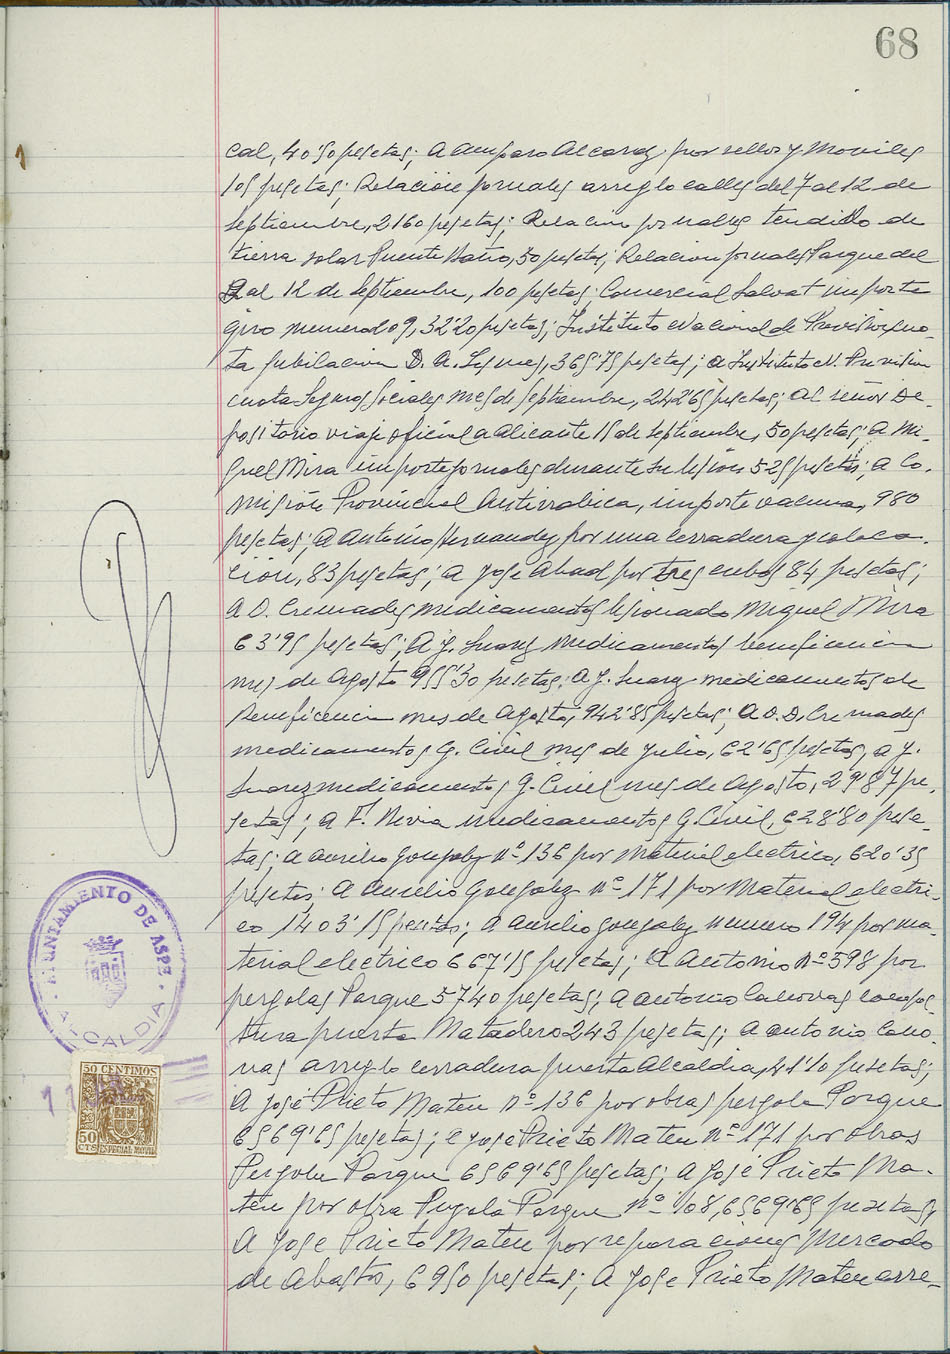 68
cal, 40'50 pesetas; A Amparo Alcaraz por sellos y Moviles
105 pesetas; Relación jornales arreglo calles del 7 al 12 de
septiembre, 2160 pesetas; Relacion jornales tendido de
tierra solar Puente Baño, 50 pesetas; Relacion jornales Parque del
9 al 12 de Septiembre, 100 pesetas; Comercial Salvat importe
giro numero 109, 32'20 pesetas; Instituto Nacional de Prevision cuo-
ta jubilacion D. A. 365'75 pesetas; a Instituto N. Prevision
cuota Seguros Sociales mes de Septiembre, 2426 pesetas; al señor De-
positario viaje oficial a Alicante 15 de Septiembre, 50 pesetas; A Mi-
guel Mira importe jornales durante su lesión 525 pesetas; a Co-
misión Provincial Antirrabica, importe vacuna, 980
pesetas; A Antonio Hernandez por una cerradura y coloca-
cion, 83 pesetas; A Jose Abad por tres cubos 84 pesetas;
A O. Cremades medicamentos lesionado Miguel Mira
63'95 pesetas; A J. Suarez Medicamentos beneficencia
mes de Agosto 955'30 pesetas; A J. Suarez medicamentos de
Beneficencia mes de Agosto, 942'85 pesetas; A O. D. Cremades
medicamentos G. Civil mes de Julio, 62'65 pesetas, a J.
Suarez medicamentos G. Civil mes de Agosto, 29'87 pe-
setas; A F. medicamentos G. Civil, 628'80 pese-
tas; a Aurelio Gonzalez nº 136 por Material electrico, 620'35
pesetas; A Aurelio Gonzalez nº 171 por Material electri-
co 1403'15 pesetas; A Aurelio Gonzalez numero 194 por ma-
terial electrico 667'15 pesetas; A Antonio nº 398 por
pergolas Parque 5740 pesetas; a Antonio Canovas compos-
tura puerta Matadero 243 pesetas; A Antonio Cano-
vas arreglo cerradura puerta Alcaldia, 41'10 pesetas;
A José Prieto Mateu nº 136 por obras pergola Parque
6569'65 pesetas; a Jose Prieto Mateu nº 171 por obras
Pergola Parque 6569'65 pesetas; A José Prieto Ma-
teu por obra Pergola Parque nº 108, 6569'65 pesetas;
A Jose Prieto Mateu por reparaciones Mercado
de Abastos, 6950 pesetas; A Jose Prieto Mateu arre-
AYUNTAMIENTO DE ASPE
ALCALDIA
50 CENTIMOS
50
CTS
ESPECIAL MOVIL